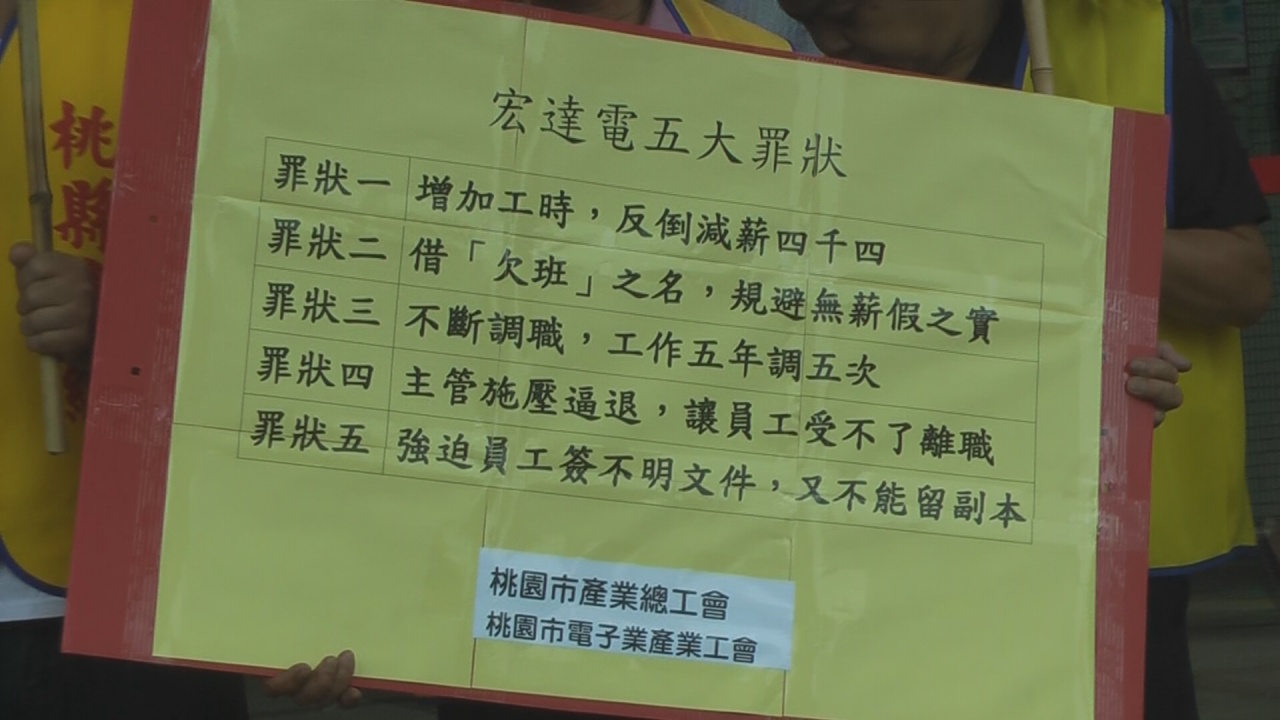 桃縣
宏達電五大罪狀
罪狀一 增加工時，反倒減薪四千四
罪狀二 借「欠班」之名，規避無薪假之實
罪狀三 不斷調職，工作五年調五次
罪狀四 主管施壓逼退，讓員工受不了離職
罪狀五 強迫員工簽不明文件，又不能留副本
桃園市產業總工會
桃園市電子業產業工會